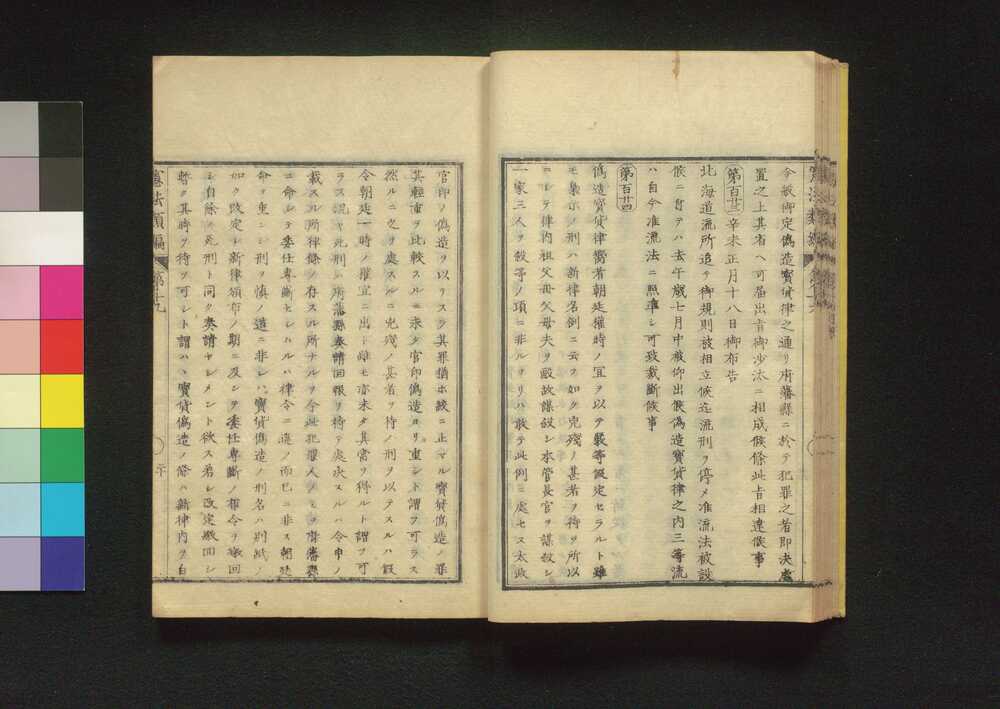 今般御定偽造寳貨律之通リ府藩縣ニ於テ犯罪之者即決處
置之上其省ヘ可届出旨御沙汰ニ相成候條此旨相達候事
第百廿三 辛未正月十八日御布告
北海道流所追テ御規則被相立候迄流刑ヲ停メ准流法被設
候ニ旨テハ去午歳七月中被仰出候偽造寳貨律之内三等流
ハ自今准流法ニ照準シ可致裁斷候事
第百廿四
偽造寳貨律嚮者朝廷權時ノ宜ヲ以テ裁等假定セラルト雖
モ梟示ノ刑ハ新律名例ニ云フ如ク兇殘ノ甚者ヲ待ツ所以
ニシテ律内祖父母父母夫ヲ毆故謀殺シ本管長官ヲ謀殺シ
一家三人ヲ殺等ノ項ニ非ルヨリハ敢テ此例ニ處セス太政
官印ノ偽造ヲ以テスラ其罪猶ホ絞ニ止マル寳貨偽造ノ罪
其輕重ヲ比較スルニ未タ官印偽造ヨリ重シト謂フ可ラス
然ルニ之ヲ處スルニ兇殘ノ甚者ヲ待ノ刑ヲ以テスルハ假
令朝廷一時ノ權宜ニ出ト雖モ亦未タ其當ヲ得ルト謂フ可
ラス況ヤ死刑ハ府藩縣奏請回報ヲ待テ處決スルハ令中ノ
載スル所律條ノ存スル所ナルヲ今此犯罪人ノミヲ府藩縣
ニ命シテ委任專斷セシムルハ律令ニ違フ而已ニ非ス朝廷
命ヲ重ニシ刑ヲ慎ノ道ニ非レハ寳貨偽造ノ刑名ハ別紙ノ
如ク改定シ新律領布ノ期ニ及シテ委任專斷ノ權令ヲ繳回
シ自餘ノ死刑ト同ク奏請セシメント欲ス若シ改定繳回シ
暫ク其時ヲ待ツ可シト謂ハヽ寳貨偽造ノ條ハ新律内ヲ自
憲法類編 第十九